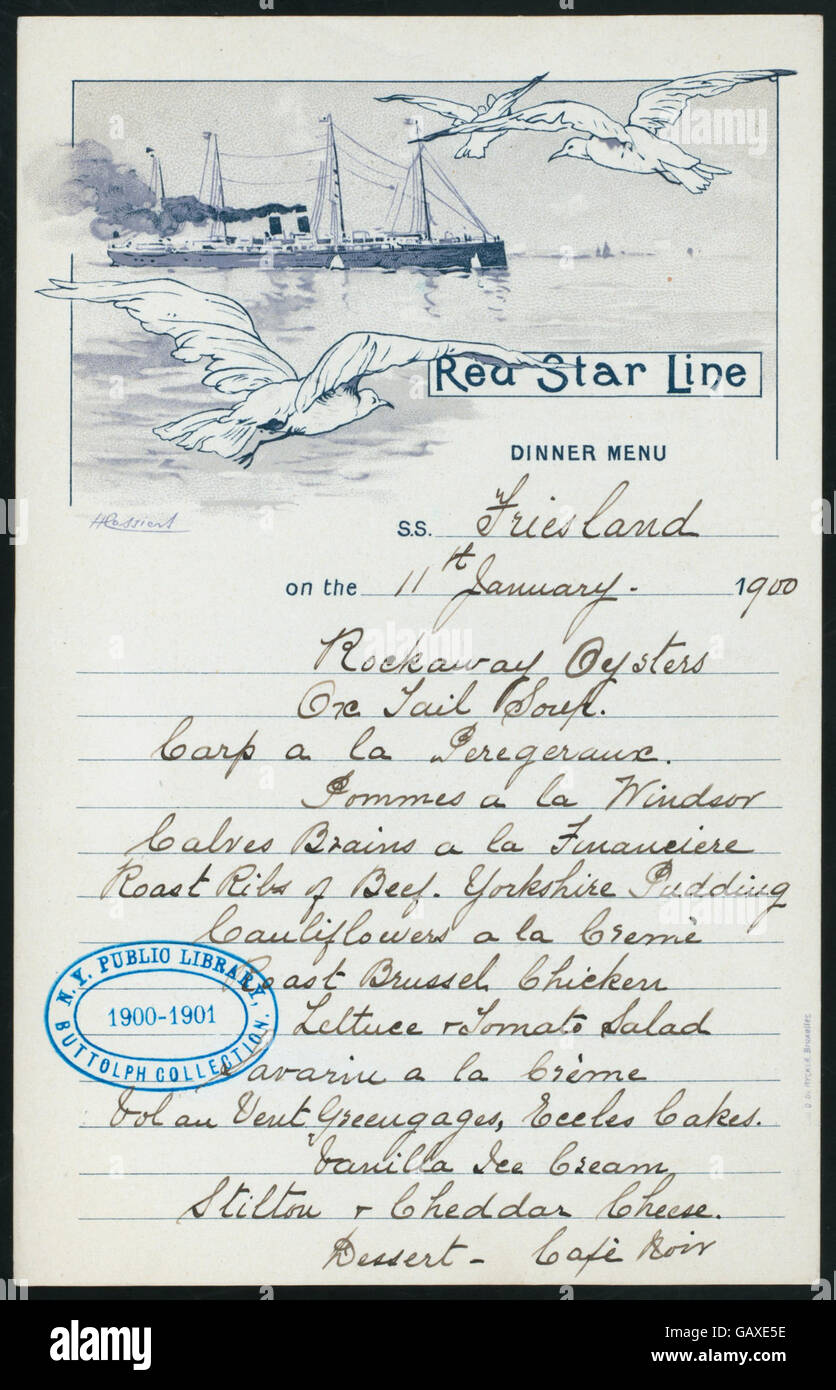 Red Star Line
DINNER MENU
H Cassiers
S.S. Friesland
on the 11th January. 1900
Rockaway Oysters
Ox Tail Soup.
Carp a la Peregeraux.
Pommes a la Windsor
Calves Brains a la Financiere
Roast Ribs of Beef. Yorkshire Pudding
Cauliflowers a la Cremè
Roast Brussel Chicken
N.Y. PUBLIC LIBRARY,
1900-1901
BUTTOLPH COLLECTION.
Lettuce & Tomato Salad
Savarin a la Crème
Vol au Vent Greengages, Eccles Cakes.
Vanilla Ice Cream
Stilton & Cheddar Cheese.
Dessert - Cafè Noir
alamy
alamy
Image ID: GAXE5E
www.alamy.com